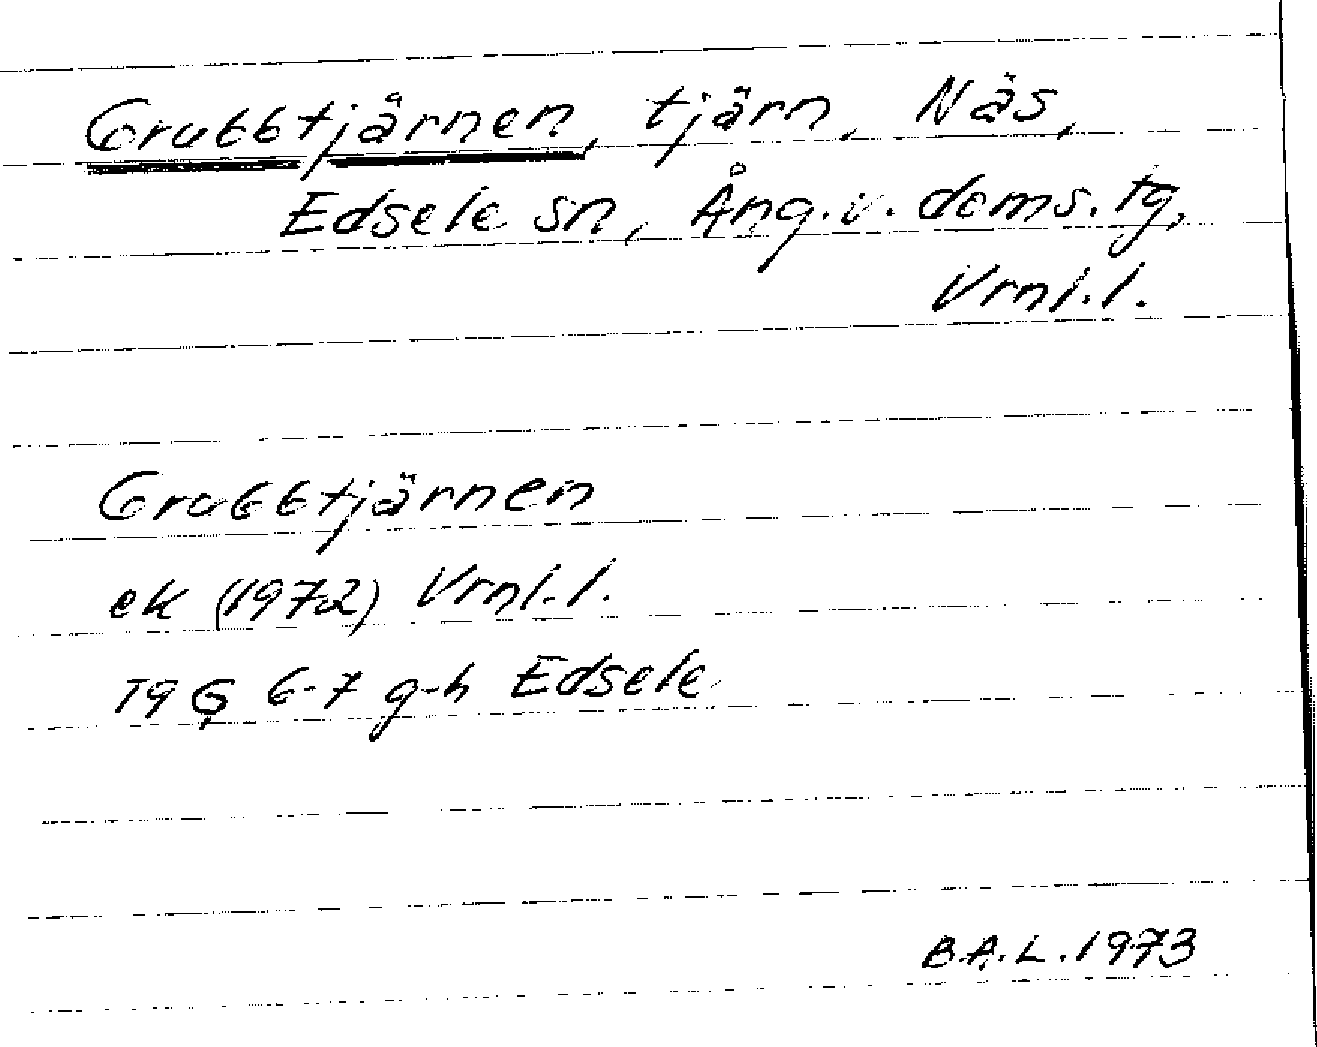 Grubbtjärnen, tjärn, Näs,
Edsele sn, Ång.v. doms. tg,
Vrnl.l.
Grubbtjärnen
ek (1972) Vrnl.l.
19 G 6-7 g-h Edsele
B.A.L. 1973